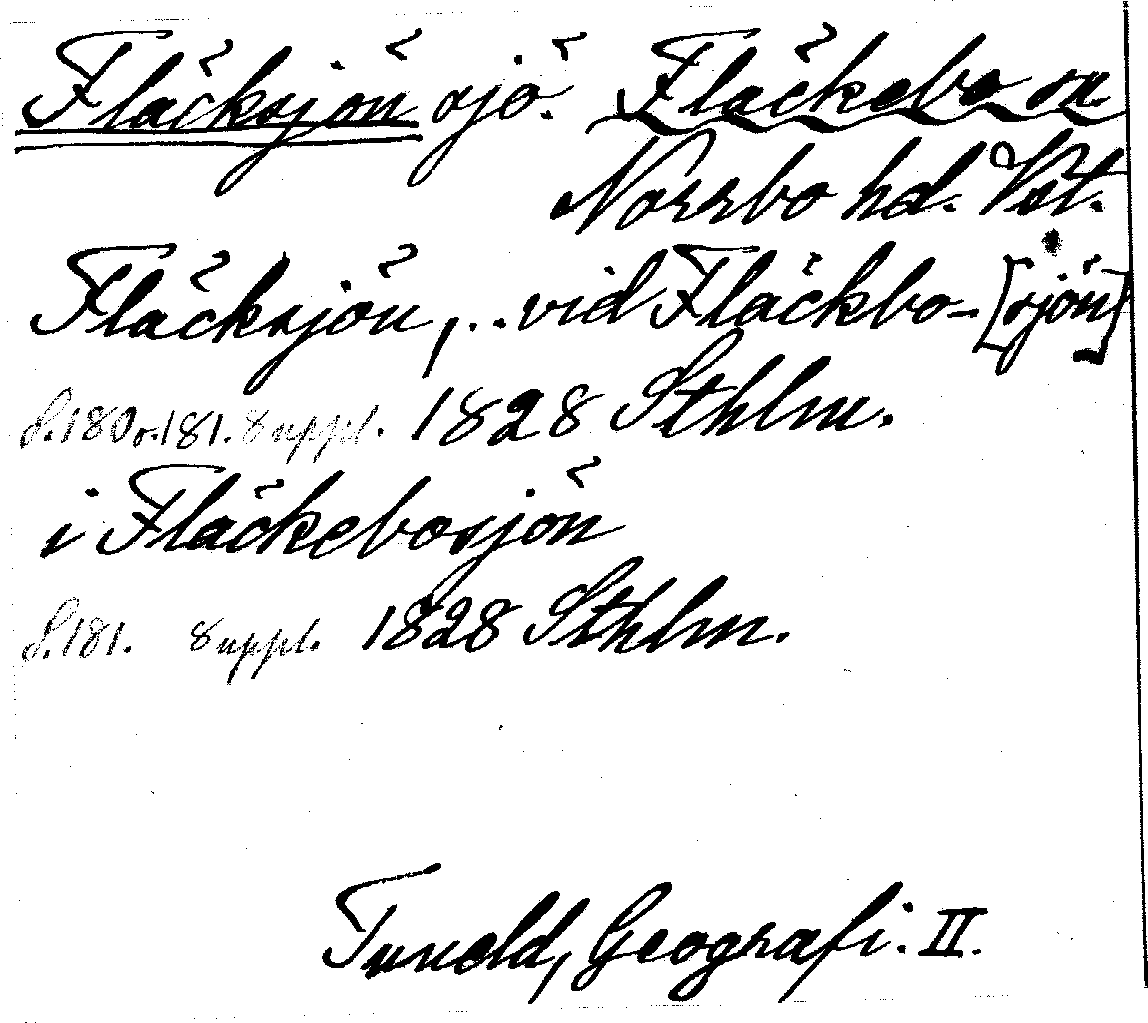 Fläcksjön sjö. Fläckebo sn.
Norrbo hd. Vst.
Fläcksjön, .. vid Fläckbo-[sjön]
S. 180 o. 181. Suppl. 1828 Sthlm.
i Fläckebosjön
S. 181. Suppl. 1828 Sthlm.
Tuneld, Geografi. II.